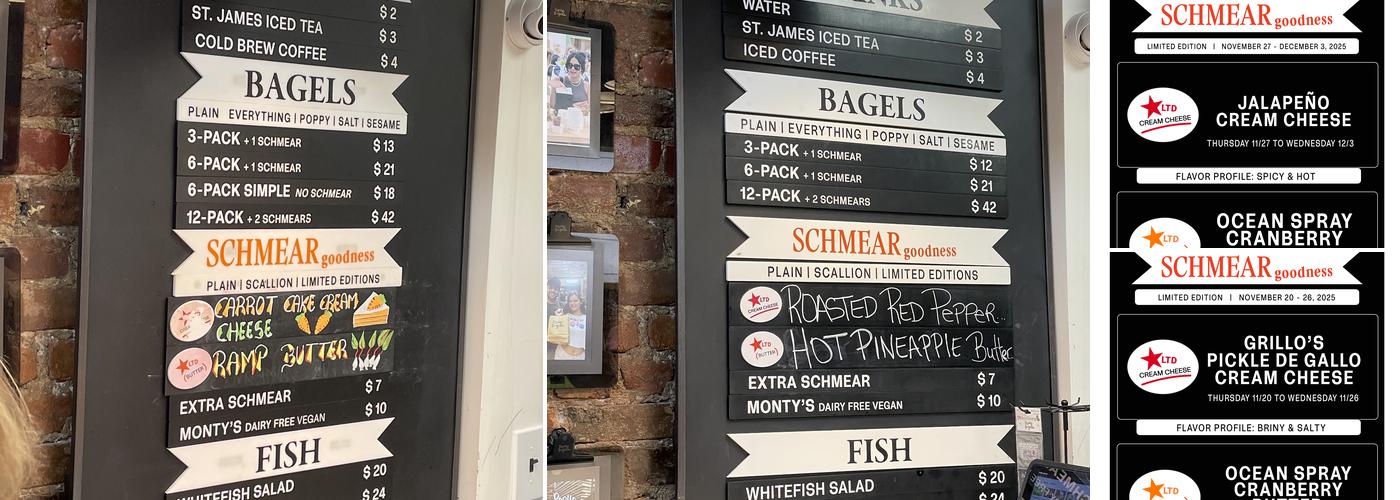 $ 2
ST. JAMES ICED TEA $ 3
COLD BREW COFFEE $ 4
BAGELS
PLAIN EVERYTHING | POPPY | SALT | SESAME
3-PACK + 1 SCHMEAR $ 13
6-PACK + 1 SCHMEAR $ 21
6-PACK SIMPLE NO SCHMEAR $ 18
12-PACK + 2 SCHMEARS $ 42
SCHMEAR goodness
PLAIN | SCALLION | LIMITED EDITIONS
CARROT CAKE CREAM
CHEESE
LTD
(BUTTER)
RAMP BUTTER
EXTRA SCHMEAR $ 7
MONTY'S DAIRY FREE VEGAN $ 10
FISH
WHITEFISH SALAD $ 20
$ 24
WATER $ 2
ST. JAMES ICED TEA $ 3
ICED COFFEE $ 4
BAGELS
PLAIN | EVERYTHING | POPPY | SALT | SESAME
3-PACK + 1 SCHMEAR $ 12
6-PACK + 1 SCHMEAR $ 21
12-PACK + 2 SCHMEARS $ 42
SCHMEAR goodness
PLAIN | SCALLION | LIMITED EDITIONS
LTD
CREAM CHEESE
ROASTED RED PEPPER...
LTD
(BUTTER)
HOT PINEAPPLE Butter
EXTRA SCHMEAR $ 7
MONTY'S DAIRY FREE VEGAN $ 10
FISH
WHITEFISH SALAD $ 20
$ 24
SCHMEAR goodness
LIMITED EDITION | NOVEMBER 27 - DECEMBER 3, 2025
LTD
CREAM CHEESE
JALAPEÑO
CREAM CHEESE
THURSDAY 11/27 TO WEDNESDAY 12/3
FLAVOR PROFILE: SPICY & HOT
LTD
OCEAN SPRAY
CRANBERRY
SCHMEAR goodness
LIMITED EDITION | NOVEMBER 20 - 26, 2025
LTD
CREAM CHEESE
GRILLO'S
PICKLE DE GALLO
CREAM CHEESE
THURSDAY 11/20 TO WEDNESDAY 11/26
FLAVOR PROFILE: BRINY & SALTY
LTD
OCEAN SPRAY
CRANBERRY